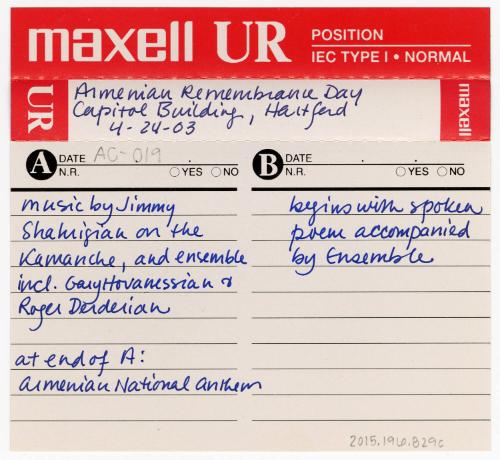 maxell UR POSITION
IEC TYPE I • NORMAL
UR
Armenian Remembrance Day
Capitol Building, Hartford
4-24-03
maxell
A DATE AC-019 . .
N.R. ○YES ○NO
music by Jimmy
Shahrigian on the
Kamanche, and ensemble
incl. Gary Hovanessian &
Roger Derderian
at end of A:
Armenian National Anthem
B DATE . .
N.R. ○YES ○NO
begins with spoken
poem accompanied
by Ensemble
2015.196.829c